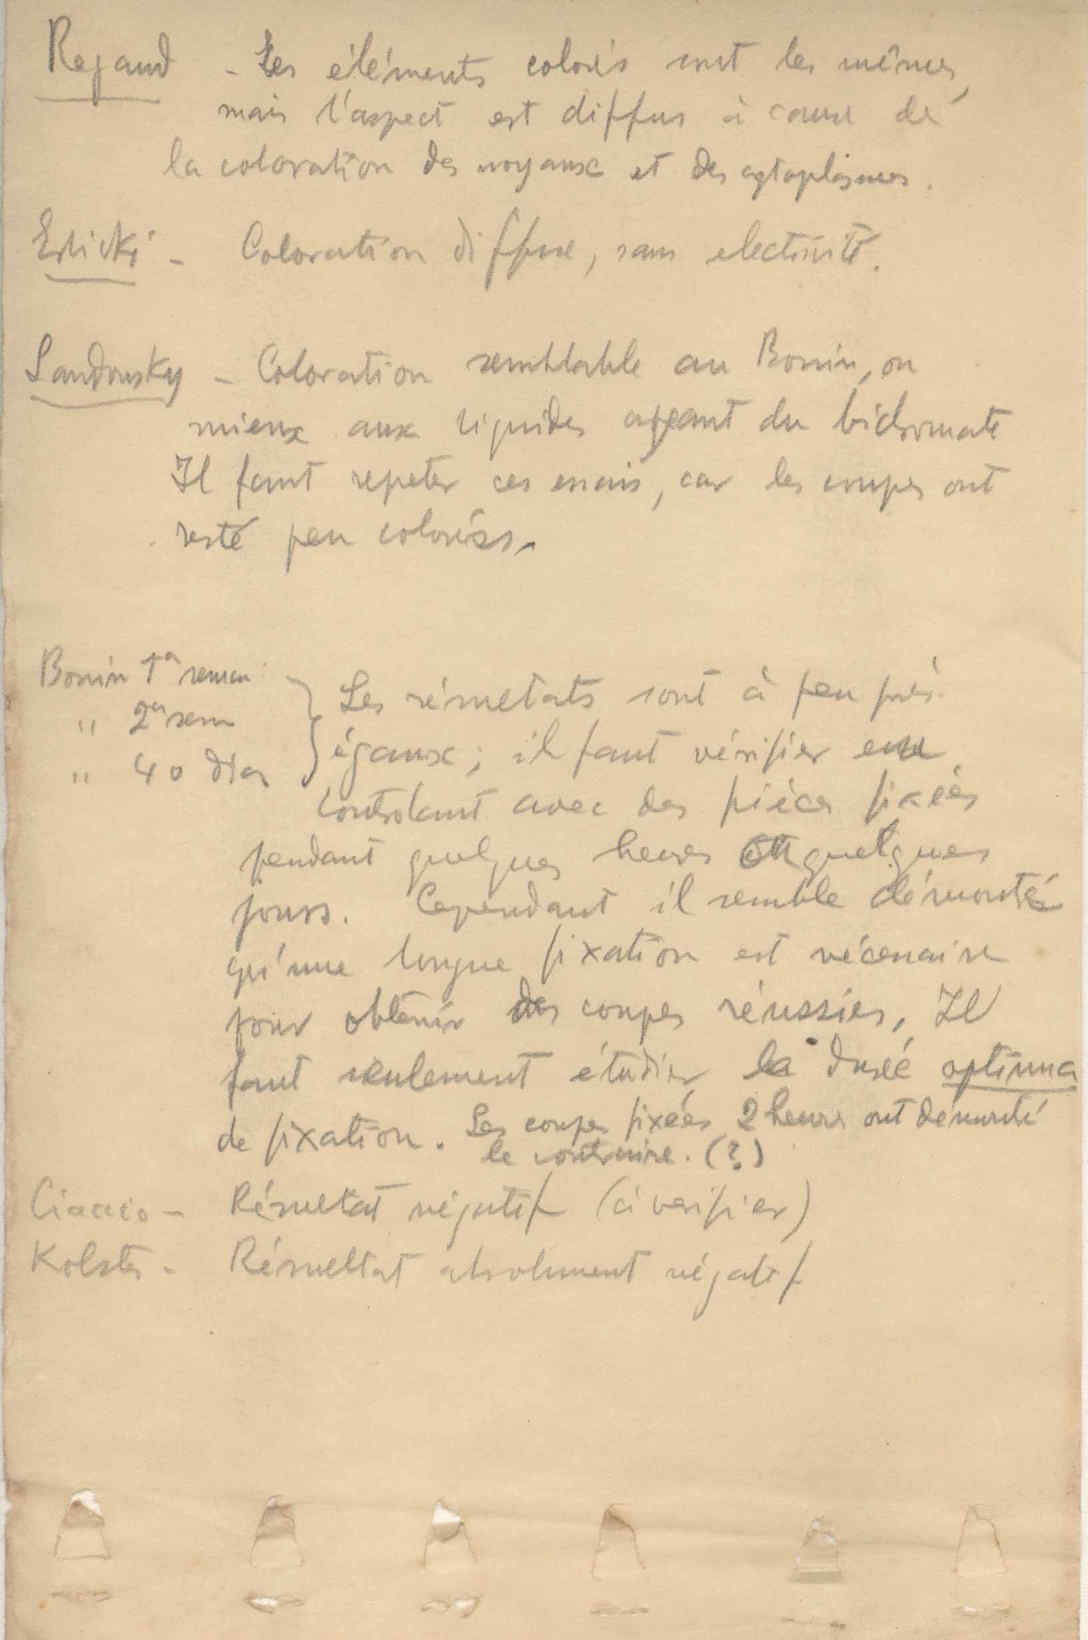 Regaud - Les éléments colorés sont les mêmes,
mais l'aspect est diffus à cause de
la coloration des noyaux et des cytoplasmes.
Erlicki - Coloration diffuse, sans electivité.
Landowsky - Coloration semblable au Bouin, ou
mieux aux liquides ayant du bichromate
Il faut repeter ces essais, car les coupes ont
resté peu colorées.
Bouin 1a seman
" 2a sem
" 40 dias
Les résultats sont à peu près
égaux; il faut vérifier en
controlant avec des pièces fixées
pendant quelques heures ou quelques
jours. Cependant il semble démontré
qu'une longue fixation est nécessaire
pour obtenir des coupes réussies, Il
faut seulement étudier la dureé optima
de fixation. Les coupes fixées 2 heures ont demontré
le contraire. (?)
Ciaccio - Résultat négatif (à verifier)
Kolster - Résultat absolument négatif